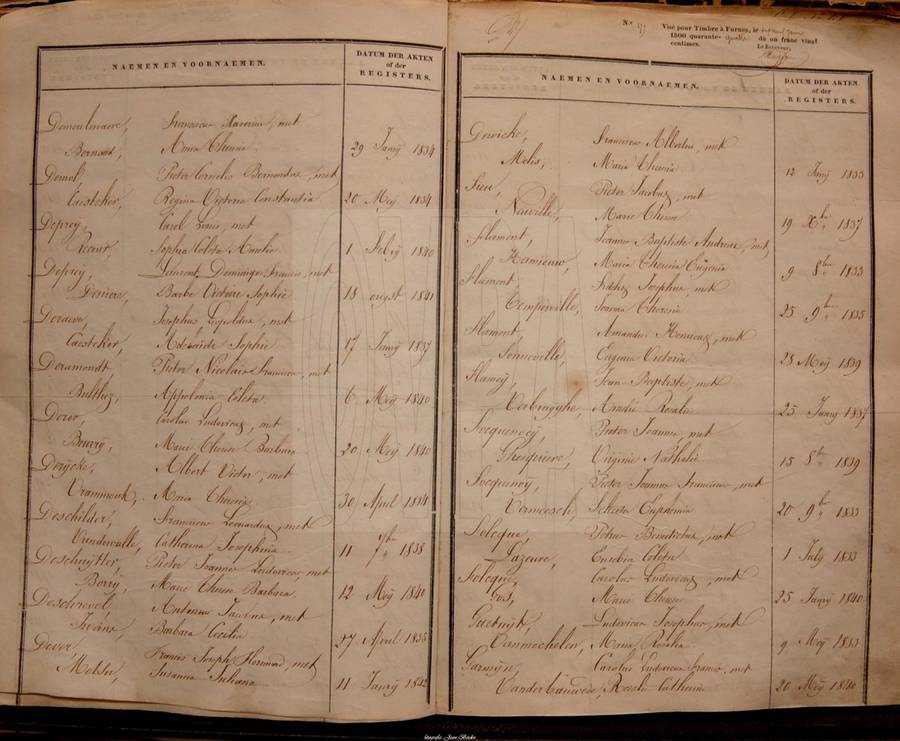 NAEMEN EN VOORNAEMEN.
DATUM DER AKTEN
of der
REGISTERS.
Demeulenaere, Franciscus Xaverius, met
Bernard, Anna Theresia 29 Janij 1834
Demol, Pieter Cornelis Bernardus, met
Caesteker, Regina Victoria Constantia 20 Meij 1834
Deprey, Carel Louis, met
Sophia Coleta Amelie 1 Febij 1840
Deprey, Laurent Dominique Francis, met
Deniere, Barbe Victoire Sophie 18 oogst 1841
Deraeve, Josephus Leopoldus, met
Caesteker, Adelaïde Sophie 17 Janij 1837
Deramondt, Pieter Nicolaus Franciscus, met
Bulthez, Appolonia Coleta 6 Meij 1840
Deroo, Carolus Ludovicus, met
Bourrij, Marie Therese Barbara 20 Meij 1840
Derijcke, Albert Victor, met
Vrammout, Maria Theresia 30 April 1834
Deschilder, Franciscus Leonardus, met
Vandewalle, Catharina Josephina 11 7be 1838
Deschuÿtter, Pieter Joannes Ludovicus, met
Berrij, Marie Therese Barbara 12 Meij 1840
Deschrevel, Antonius Jacobus, met
Barbara Cecilia 27 April 1835
Devos, Francis Joseph Hermand, met
Susanna Juliana 11 Janij 1842
Nº
Visé pour Timbre à Furnes, le
1800 quarante- quatre dû un franc vingt
centimes.
Le Receveur,
NAEMEN EN VOORNAEMEN.
DATUM DER AKTEN
of der
REGISTERS.
Dewicke, Franciscus Albertus, met
Melis, Maria Theresia 12 Janij 1833
Pieter Jacobus, met
Neuville, Marie Therese 19 Xbe 1837
Flamont, Joannes Baptiste Andreas, met
Maria Theresia Eugenia 9 8bre 1833
Flament, Fidelis Josephus, met
Temperville, Joanna Theresia 25 9be 1835
Flament, Amandus Henricus, met
Senneville, Eugenia Victoria 28 Meij 1839
Flameij, Jean-Baptiste, met
Verbrugghe, Amelie Rosalie 25 Janij 1837
Focquenoeij, Pieter Joannes, met
Ghesquiere, Virginie Nathalie 15 8be 1839
Focquenoij, Pieter Joannes Franciscus, met
Vermeesch, Euphemia 20 9be 1833
Petrus Benedictus, met
Lazeure, Eusebia Coleta 1 Julij 1833
Carolus Ludovicus, met
Marie Therese 25 Janij 1840
Ludovicus Josephus, met
Vanmechelen, Maria Rosalia 9 Meij 1833
Carolus Ludovicus Francis, met
Vanderbauwede, Rosalie Catharina 20 Meij 1840